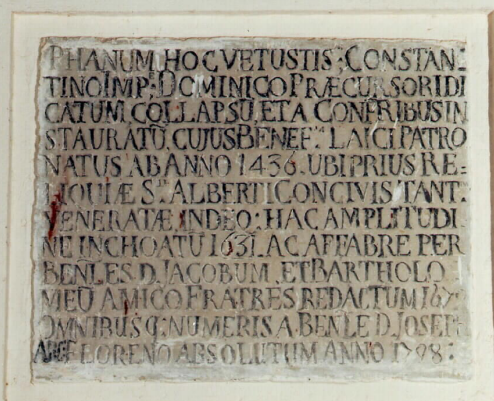 PHANUM HOC VETUSTIS: CONSTAN=
TINO IMP: DOMINICO PRÆCURSORI DI
CATUM COLLAPSŪ, ET A CONFRIBUS IN
STAURATŪ, CUJUS BENEF.M LAICI PATRO
NATUS AB ANNO 1436. UBI PRIUS RE=
LIQUIÆ S.TI ALBERTI CONCIVIS TANT.
VENERATÆ INDEO: HAC AMPLITUDI
NE INCHOATU 1631. AC AFFABRE PER
BEÑLES D. JACOBUM, ET BARTHOLO
MEŪ AMICO FRATRES REDACTUM
OMNIBUSQ: NUMERIS A BENLE D. JOSEP:
FLORENO ABSOLUTUM ANNO 1798: